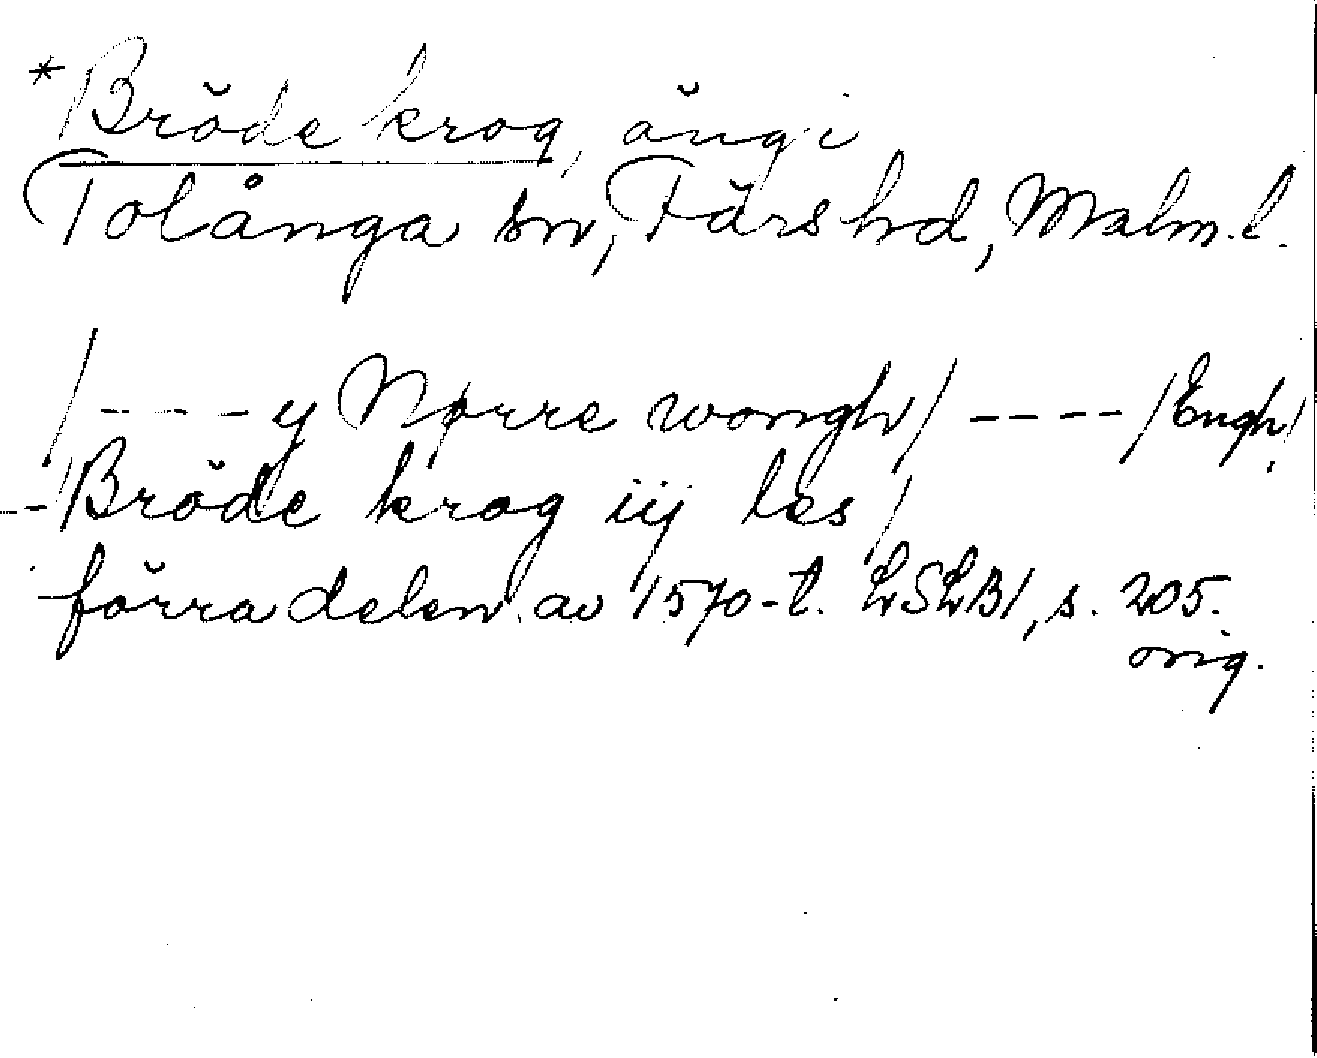 *Bröde krog, äng i
Tolånga sn, Färs hd, Malm. l.
/----y Nørre wongh/ ----/Engh/
--/Bröde krog iij les/
förra delen av 1570-t. LSLB1, s. 205.
orig.